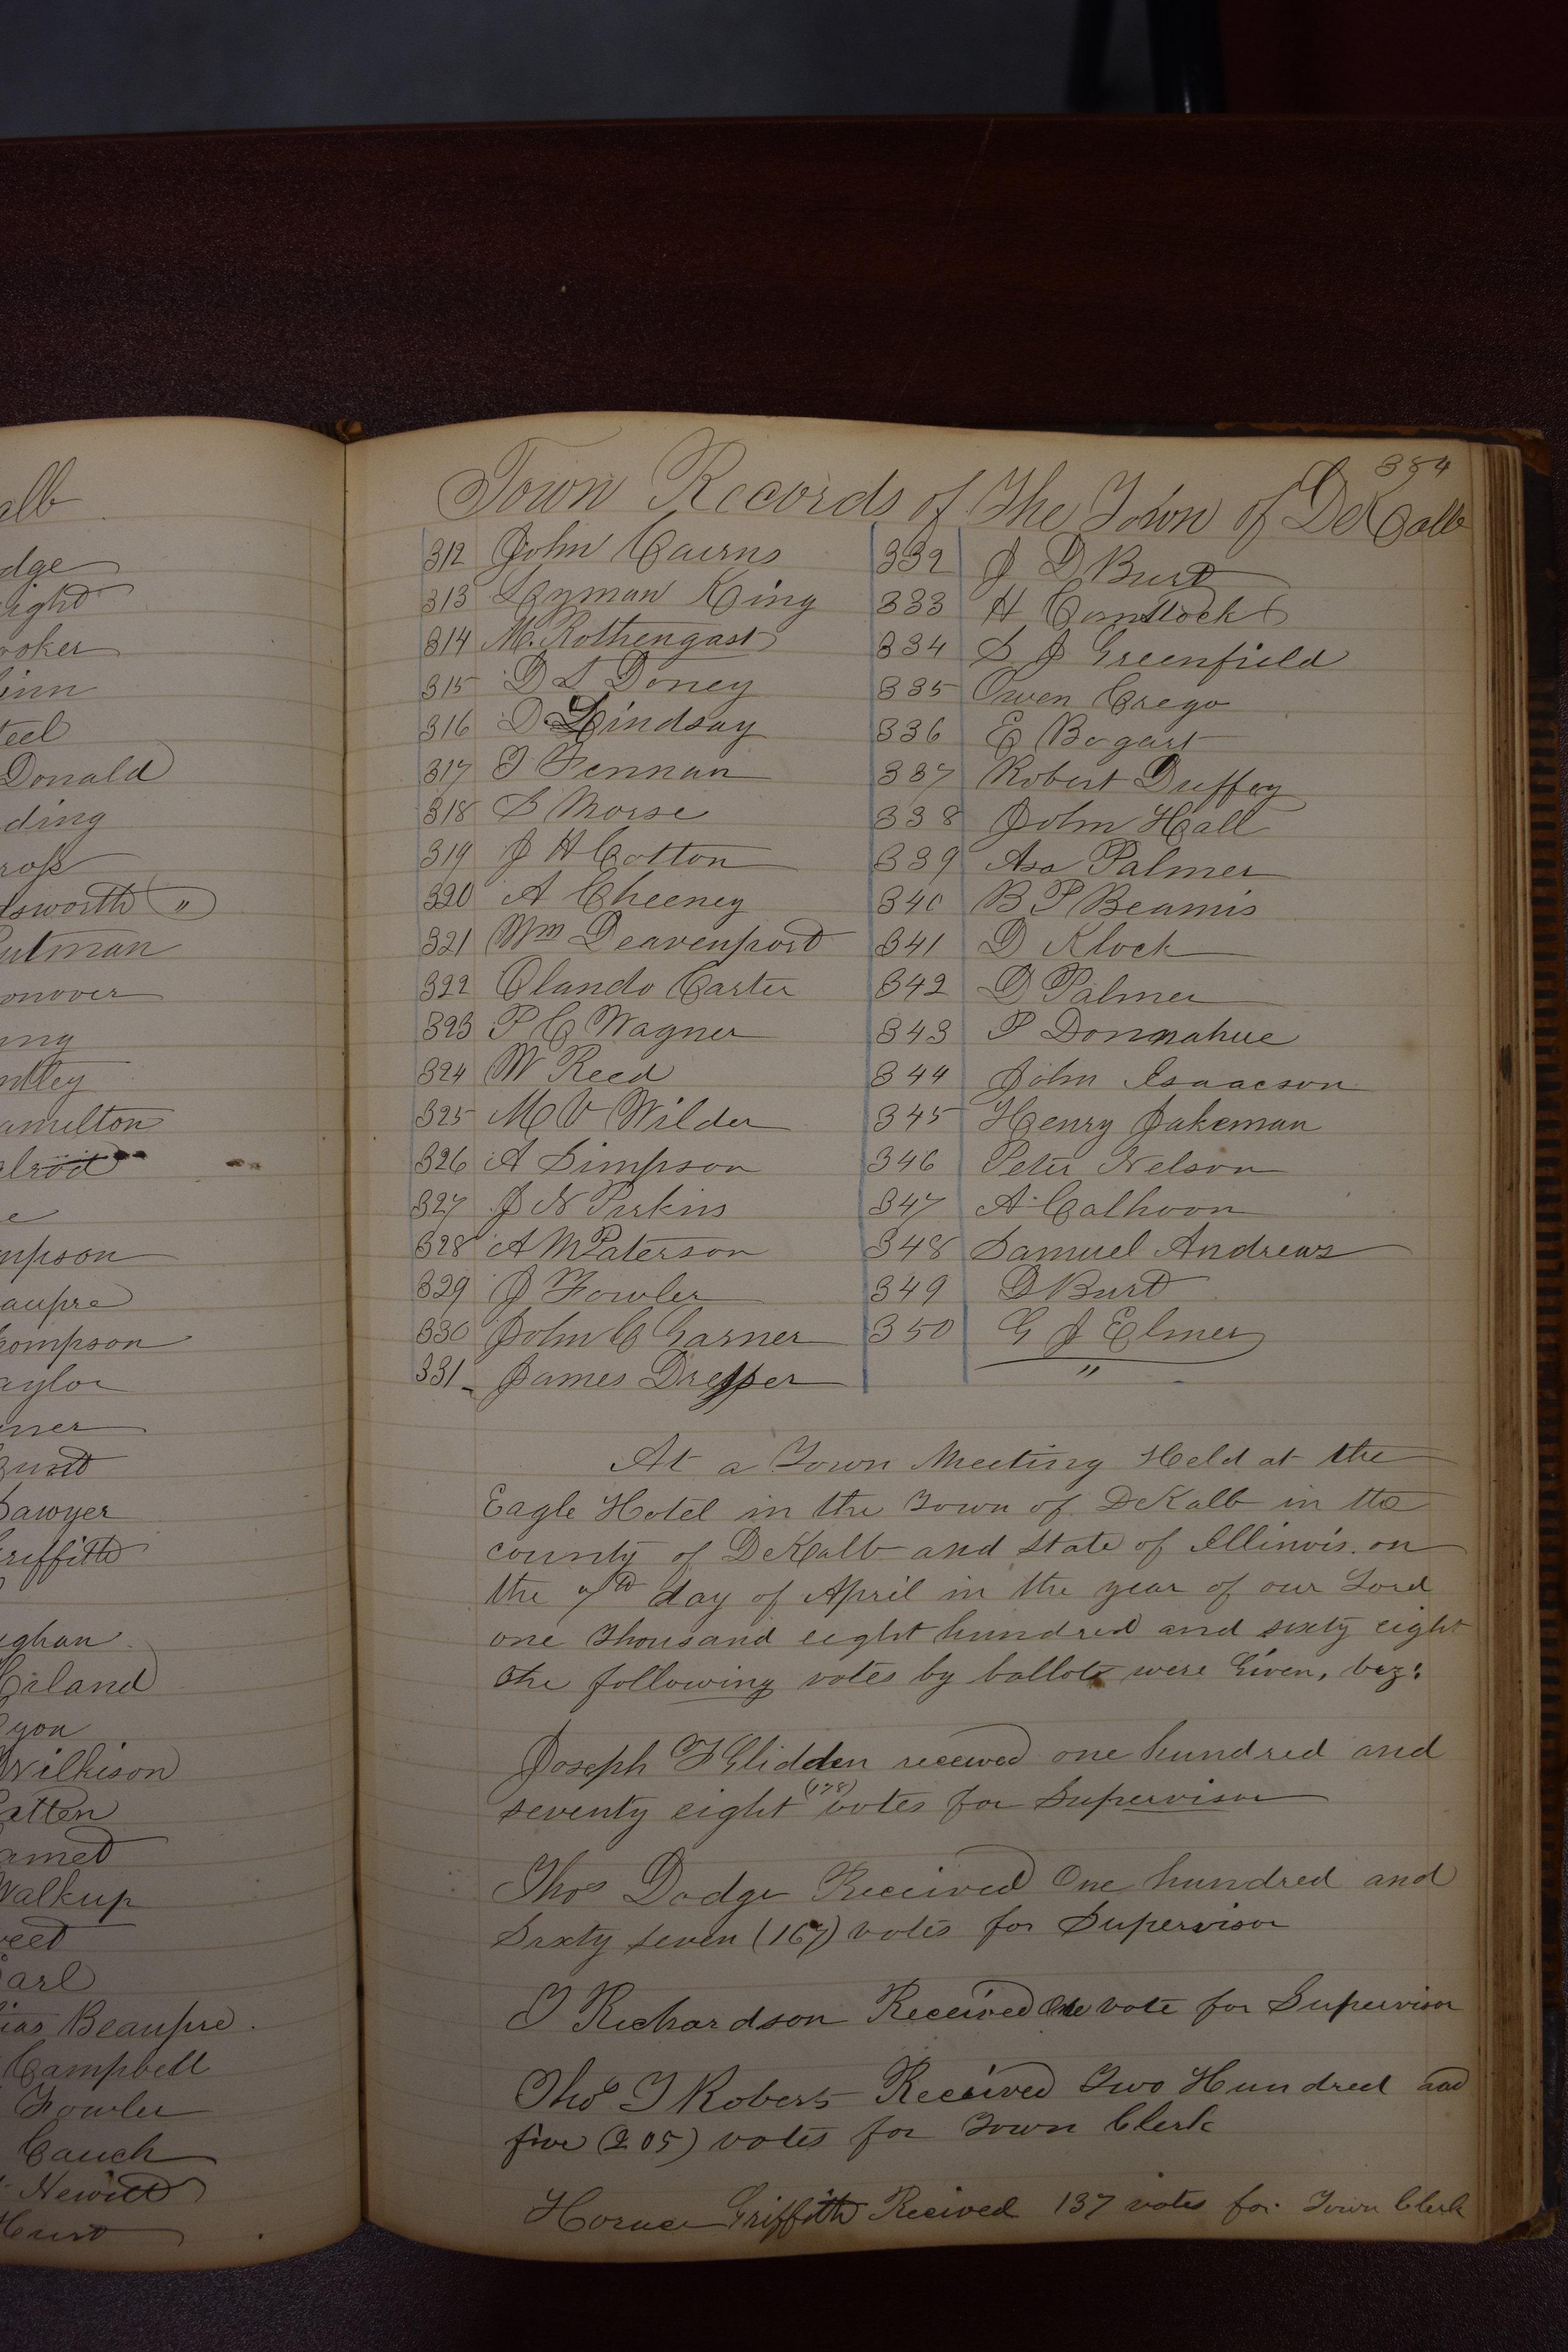 alb
dge
ight
ooker
inn
teel
Donald
ding
ross
dsworth "
utman
onover
ung
ntley
amilton
elrod
e
mpson
aupre
hompson
aylor
Sawyer
riffith
ughan
Hiland
Lyon
Wilkison
atten
amet
Walkup
weet
Earl
ias Beaupre
Campbell
Fowler
Cauch
Hewitt
Hurst
354
Town Records of The Town of DeKalb
312 John Cairns
313 Lyman King
314 M. Rothengast
315 D L Doney
316 D. Lindsay
317 T Fennan
318 S Morse
319 J H Cotton
320 A Cheeney
321 Wm Deavenport
322 Olando Carter
323 P C Wagner
324 W Reed
325 M V Wilder
326 A Simpson
327 J N Perkins
328 A M Paterson
329 J Fowler
330 John C Garner
331 James Dresser
332 J D Burt
333 H Comstock
334 S J Greenfield
335 Owen Crego
336 E Bogart
337 Robert Duffey
338 John Hall
339 Asa Palmer
340 B P Beamis
341 D Klock
342 D Palmer
343 P Donnahue
344 John Isaacson
345 Henry Jakeman
346 Peter Nelson
347 A. Calhoon
348 Samuel Andrews
349 D Burt
350 G J Elmer
"
At a Town Meeting Held at the
Eagle Hotel in the Town of DeKalb in the
county of DeKalb and State of Illinois. on
the 7th day of April in the year of our Lord
one thousand eight hundred and sixty eight
the following votes by ballots were Given, viz:
Joseph F Glidden received one hundred and
seventy eight (178) votes for Supervisor
Thos Dodge Received One hundred and
Sixty seven (167) votes for Supervisor
I Richardson Received One vote for Supervisor
Thos T Roberts Received Two Hundred and
five (205) votes for Town Clerk
Horace Griffith Received 137 votes for Town Clerk